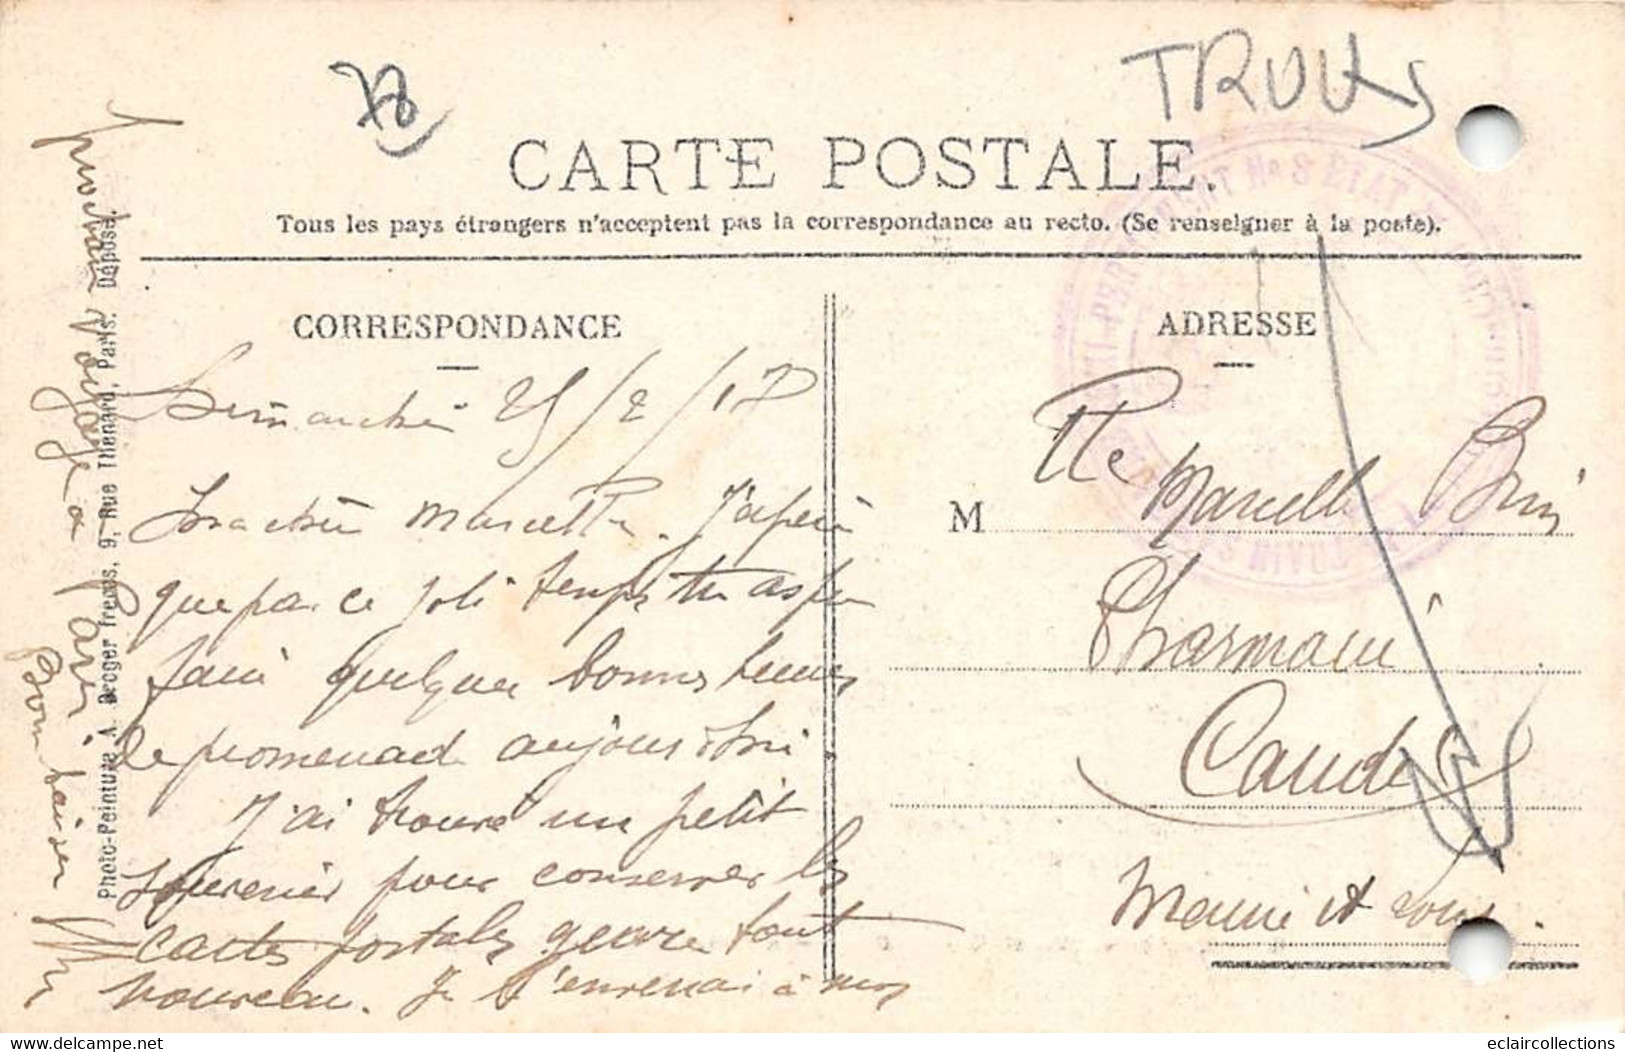 78
TROUS
CARTE POSTALE.
Tous les pays étrangers n'acceptent pas la correspondance au recto. (Se renseigner à la poste).
CORRESPONDANCE
Dimanche 25/2/17
Ma chère Marcelle. J'espère
que par ce joli temps tu as pu
faire quelques bonnes heures
de promenade aujourd'hui.
J'ai trouvé un petit
souvenir pour conserver les
cartes postales genre tout
nouveau. Je t'enverrai à mon
prochain voyage à Paris
Bon baiser
Photo-Peinture A. Breger frères, 9, Rue Thénard, Paris. Déposé.
ADRESSE
M
lle Marcelle
Pharmacie
Candé
Maine et Loire.
N° 8 ETAT
TRAIN
eclaircollections
www.delcampe.net